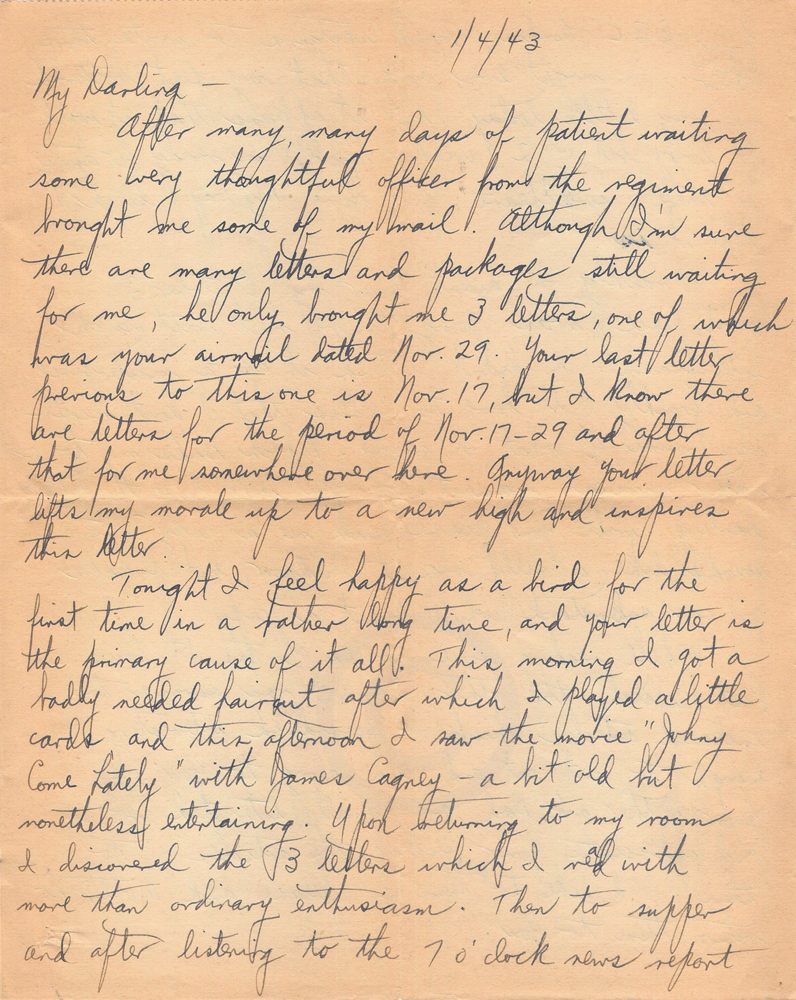 1/4/43
My Darling —
After many, many days of patient waiting
some very thoughtful officer from the regiment
brought me some of my mail. Although I'm sure
there are many letters and packages still waiting
for me, he only brought me 3 letters, one of which
was your airmail dated Nov. 29. Your last letter
previous to this one is Nov. 17, but I know there
are letters for the period of Nov. 17-29 and after
that for me somewhere over here. Anyway your letter
lifts my morale up to a new high and inspires
this letter.
Tonight I feel happy as a bird for the
first time in a rather long time, and your letter is
the primary cause of it all. This morning I got a
badly needed haircut after which I played a little
cards and this afternoon I saw the movie "Johny
Come Lately" with James Cagney - a bit old but
nonetheless entertaining. Upon returning to my room
I discovered the 3 letters which I read with
more than ordinary enthusiasm. Then to supper
and after listening to the 7 o'clock news report